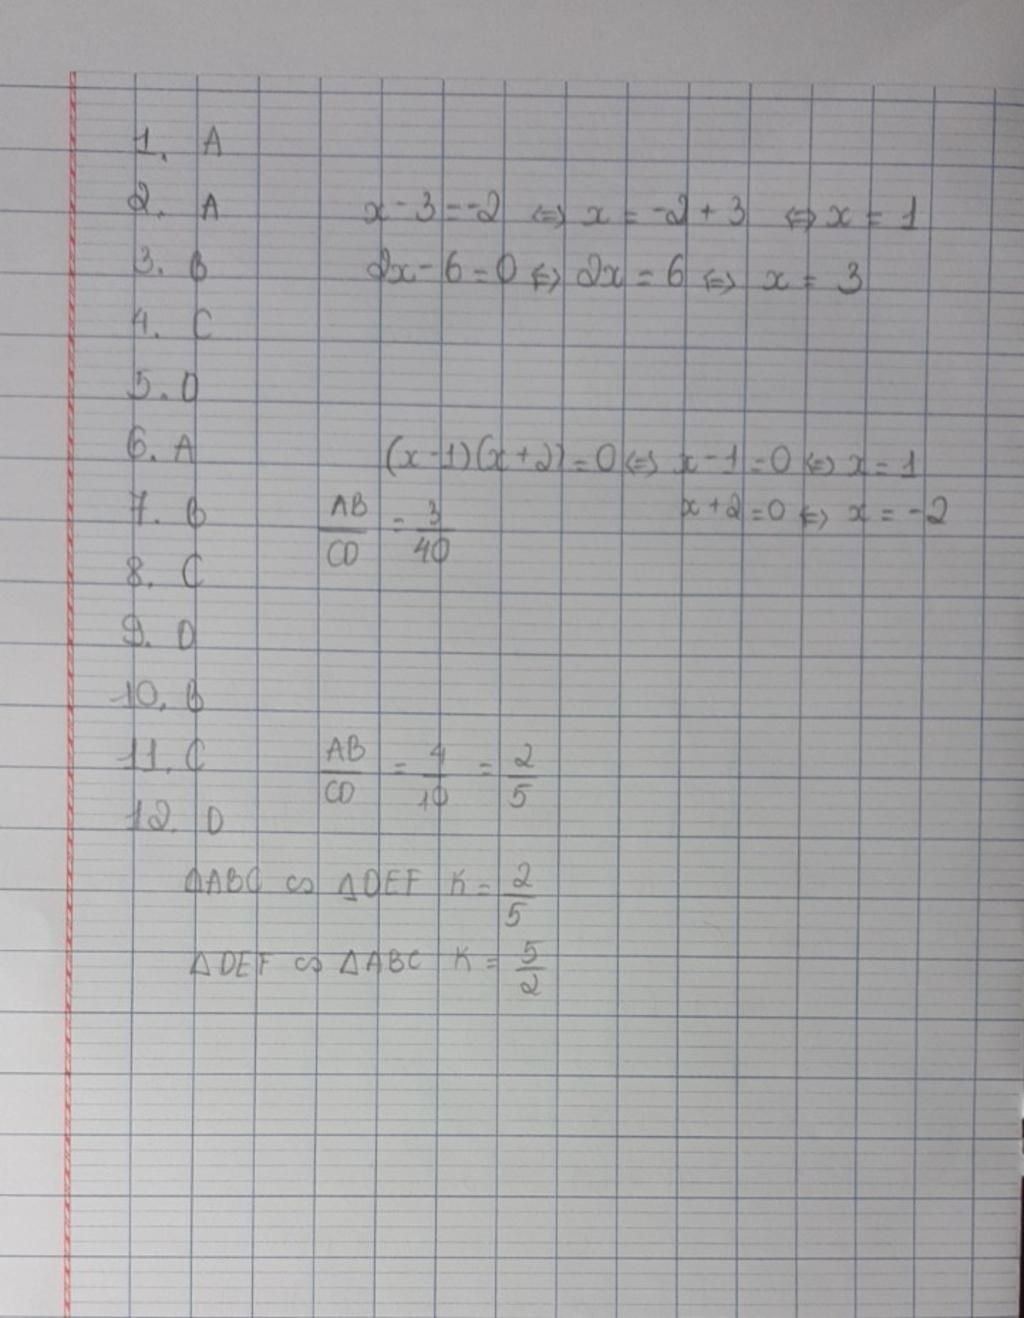 1. A
2. A x - 3 = -2 ⇔ x = -2 + 3 ⇔ x = 1
3. B 2x - 6 = 0 ⇔ 2x = 6 ⇔ x = 3
4. C
5. D
6. A (x - 1)(x + 2) = 0 ⇔ x - 1 = 0 ⇔ x = 1
x + 2 = 0 ⇔ x = -2
7. B AB/CD = 3/40
8. C
9. D
10. B
11. C AB/CD = 4/10 = 2/5
12. D
ΔABC ∽ ΔDEF K = 2/5
ΔDEF ∽ ΔABC K = 5/2